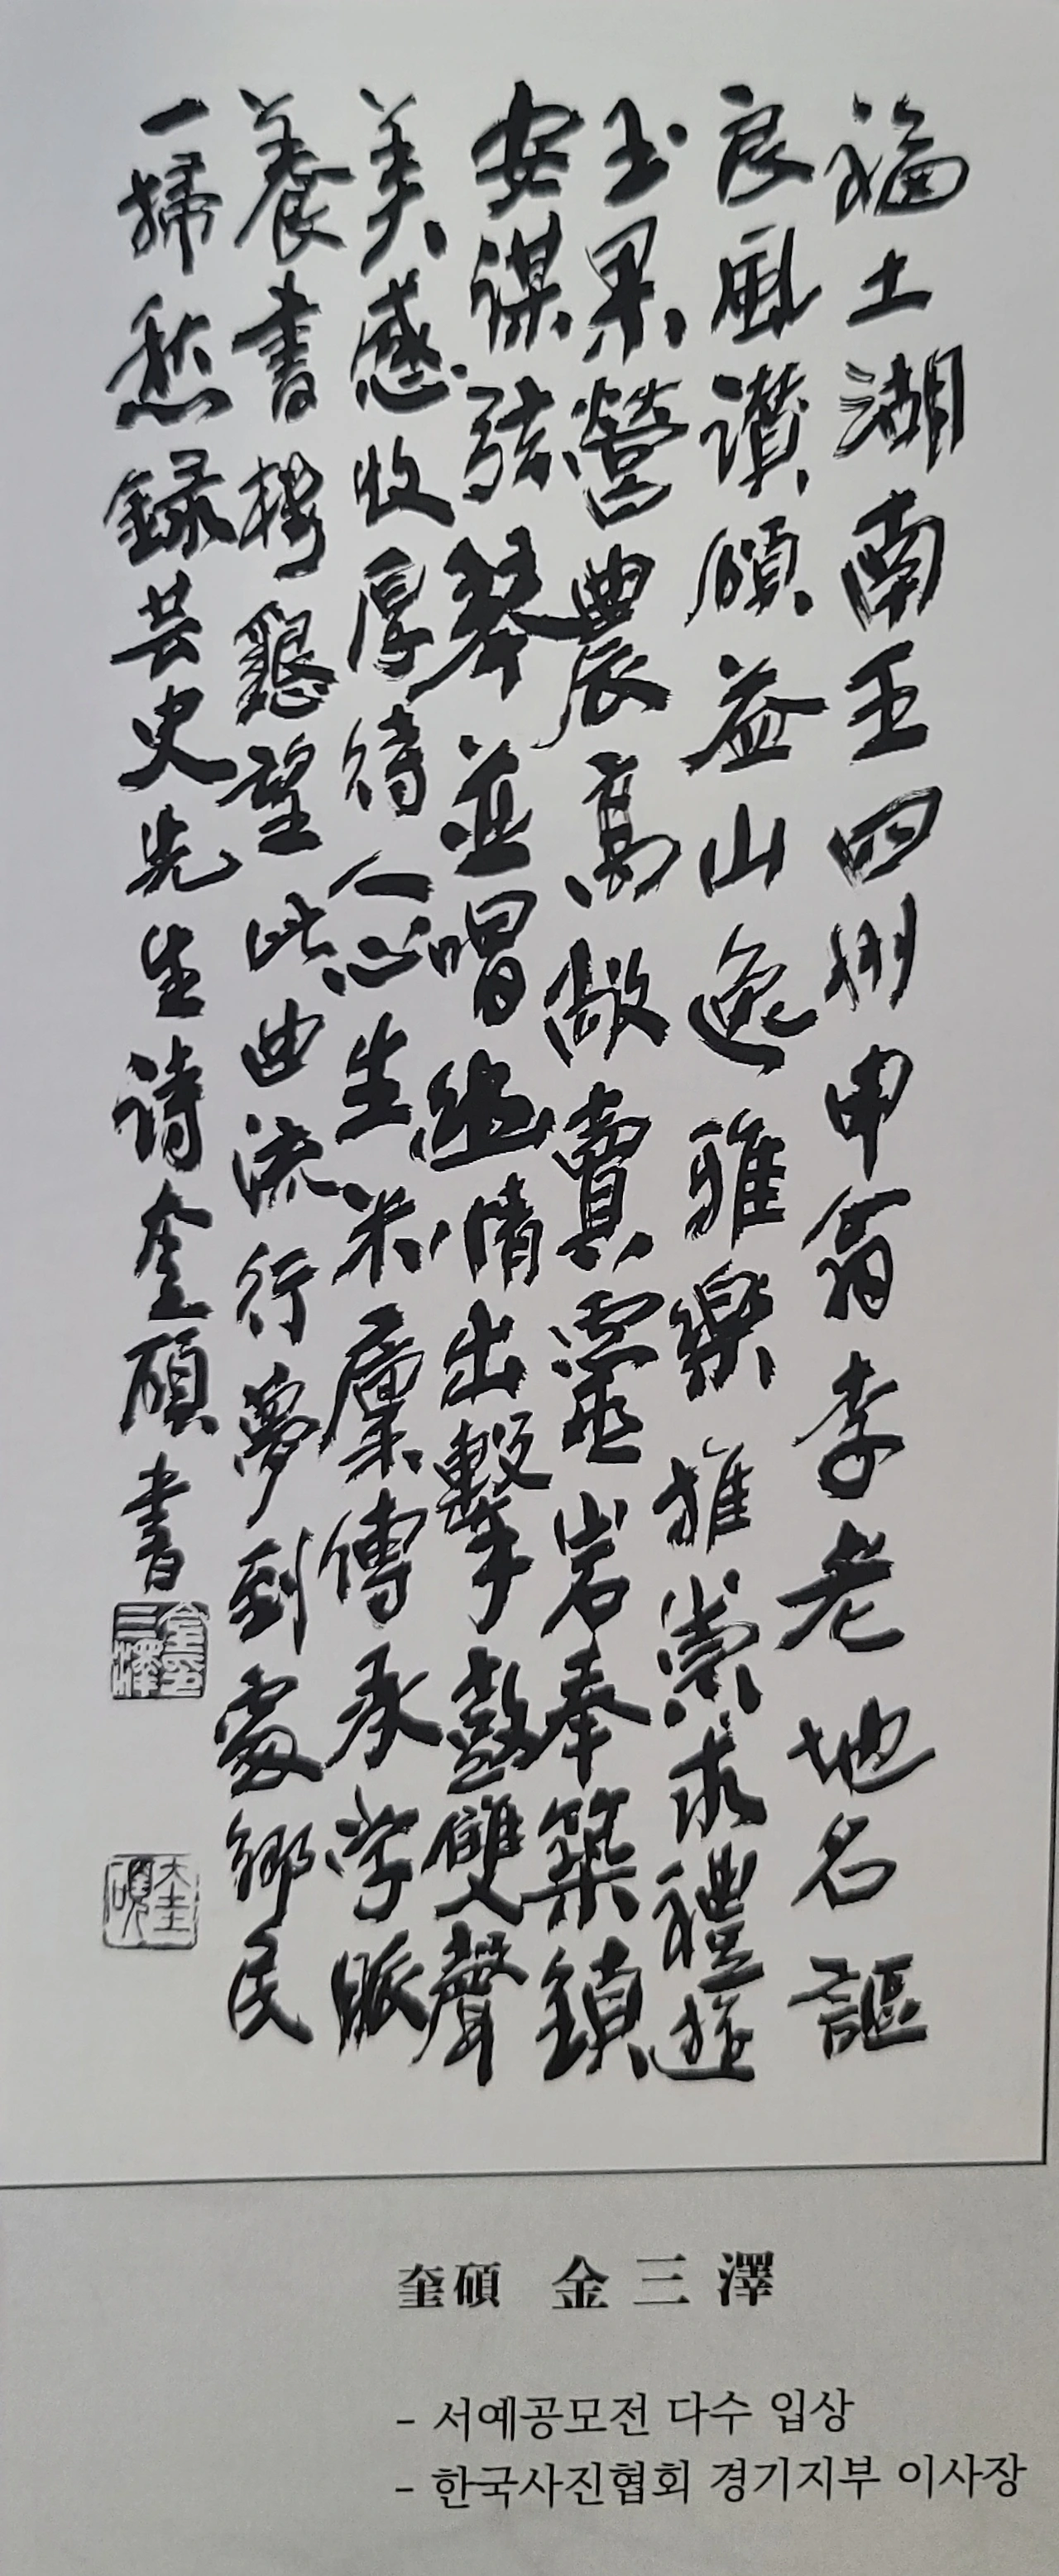 福土湖南王四州申翁李老地名謳
良風讃頌益山逸雅樂推崇求禮遊
玉果營農高敞賣靈岩奉築鎮
安謀弦琴並唱幽情出擊鼓雙聲
美感收厚待人心生米廩傳承学脈
養書樓懇望此曲流行夢到處鄉民
一掃愁 錄芸史先生詩 奎碩書
金三澤印
奎碩
奎碩 金三澤
- 서예공모전 다수 입상
- 한국사진협회 경기지부 이사장